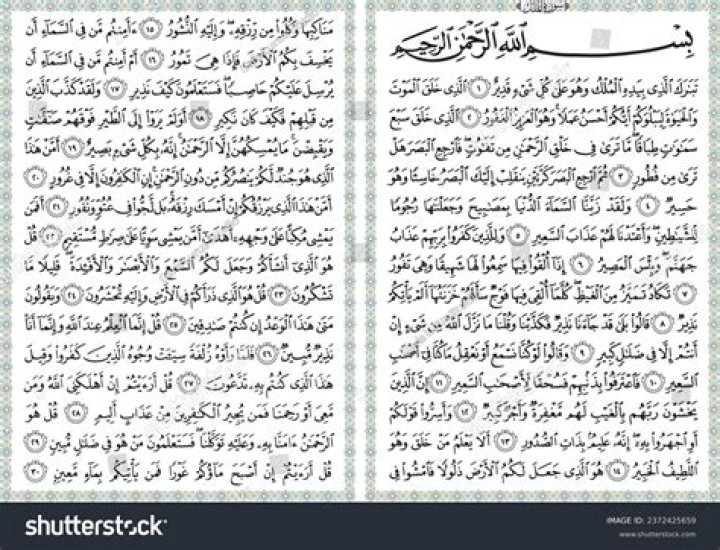 سورة الملك
بِسْمِ اللَّهِ الرَّحْمَٰنِ الرَّحِيمِ
تَبَٰرَكَ الَّذِي بِيَدِهِ الْمُلْكُ وَهُوَ عَلَىٰ كُلِّ شَيْءٍ قَدِيرٌ ١ الَّذِي خَلَقَ الْمَوْتَ
وَالْحَيَوٰةَ لِيَبْلُوَكُمْ أَيُّكُمْ أَحْسَنُ عَمَلًا وَهُوَ الْعَزِيزُ الْغَفُورُ ٢ الَّذِي خَلَقَ سَبْعَ
سَمَٰوَٰتٍ طِبَاقًا مَّا تَرَىٰ فِي خَلْقِ الرَّحْمَٰنِ مِن تَفَٰوُتٍ فَارْجِعِ الْبَصَرَ هَلْ
تَرَىٰ مِن فُطُورٍ ٣ ثُمَّ ارْجِعِ الْبَصَرَ كَرَّتَيْنِ يَنقَلِبْ إِلَيْكَ الْبَصَرُ خَاسِئًا وَهُوَ
حَسِيرٌ ٤ وَلَقَدْ زَيَّنَّا السَّمَاءَ الدُّنْيَا بِمَصَٰبِيحَ وَجَعَلْنَٰهَا رُجُومًا
لِّلشَّيَٰطِينِ وَأَعْتَدْنَا لَهُمْ عَذَابَ السَّعِيرِ ٥ وَلِلَّذِينَ كَفَرُوا بِرَبِّهِمْ عَذَابُ
جَهَنَّمَ وَبِئْسَ الْمَصِيرُ ٦ إِذَا أُلْقُوا فِيهَا سَمِعُوا لَهَا شَهِيقًا وَهِيَ تَفُورُ
٧ تَكَادُ تَمَيَّزُ مِنَ الْغَيْظِ كُلَّمَا أُلْقِيَ فِيهَا فَوْجٌ سَأَلَهُمْ خَزَنَتُهَا أَلَمْ يَأْتِكُمْ
نَذِيرٌ ٨ قَالُوا بَلَىٰ قَدْ جَاءَنَا نَذِيرٌ فَكَذَّبْنَا وَقُلْنَا مَا نَزَّلَ اللَّهُ مِن شَيْءٍ إِنْ
أَنتُمْ إِلَّا فِي ضَلَٰلٍ كَبِيرٍ ٩ وَقَالُوا لَوْ كُنَّا نَسْمَعُ أَوْ نَعْقِلُ مَا كُنَّا فِي أَصْحَٰبِ
السَّعِيرِ ١٠ فَاعْتَرَفُوا بِذَنبِهِمْ فَسُحْقًا لِّأَصْحَٰبِ السَّعِيرِ ١١ إِنَّ الَّذِينَ
يَخْشَوْنَ رَبَّهُم بِالْغَيْبِ لَهُم مَّغْفِرَةٌ وَأَجْرٌ كَبِيرٌ ١٢ وَأَسِرُّوا قَوْلَكُمْ
أَوِ اجْهَرُوا بِهِ إِنَّهُ عَلِيمٌ بِذَاتِ الصُّدُورِ ١٣ أَلَا يَعْلَمُ مَنْ خَلَقَ وَهُوَ
اللَّطِيفُ الْخَبِيرُ ١٤ هُوَ الَّذِي جَعَلَ لَكُمُ الْأَرْضَ ذَلُولًا فَامْشُوا فِي
مَنَاكِبِهَا وَكُلُوا مِن رِّزْقِهِ وَإِلَيْهِ النُّشُورُ ١٥ ءَأَمِنتُم مَّن فِي السَّمَاءِ أَن
يَخْسِفَ بِكُمُ الْأَرْضَ فَإِذَا هِيَ تَمُورُ ١٦ أَمْ أَمِنتُم مَّن فِي السَّمَاءِ أَن
يُرْسِلَ عَلَيْكُمْ حَاصِبًا فَسَتَعْلَمُونَ كَيْفَ نَذِيرِ ١٧ وَلَقَدْ كَذَّبَ الَّذِينَ
مِن قَبْلِهِمْ فَكَيْفَ كَانَ نَكِيرِ ١٨ أَوَلَمْ يَرَوْا إِلَى الطَّيْرِ فَوْقَهُمْ صَٰٓفَّٰتٍ
وَيَقْبِضْنَ مَا يُمْسِكُهُنَّ إِلَّا الرَّحْمَٰنُ إِنَّهُ بِكُلِّ شَيْءٍ بَصِيرٌ ١٩ أَمَّنْ هَٰذَا
الَّذِي هُوَ جُندٌ لَّكُمْ يَنصُرُكُم مِّن دُونِ الرَّحْمَٰنِ إِنِ الْكَٰفِرُونَ إِلَّا فِي غُرُورٍ ٢٠
أَمَّنْ هَٰذَا الَّذِي يَرْزُقُكُمْ إِنْ أَمْسَكَ رِزْقَهُ بَل لَّجُّوا فِي عُتُوٍّ وَنُفُورٍ ٢١ أَفَمَن
يَمْشِي مُكِبًّا عَلَىٰ وَجْهِهِ أَهْدَىٰ أَمَّن يَمْشِي سَوِيًّا عَلَىٰ صِرَٰطٍ مُّسْتَقِيمٍ ٢٢ قُلْ
هُوَ الَّذِي أَنشَأَكُمْ وَجَعَلَ لَكُمُ السَّمْعَ وَالْأَبْصَٰرَ وَالْأَفْـِٔدَةَ قَلِيلًا مَّا
تَشْكُرُونَ ٢٣ قُلْ هُوَ الَّذِي ذَرَأَكُمْ فِي الْأَرْضِ وَإِلَيْهِ تُحْشَرُونَ ٢٤ وَيَقُولُونَ
مَتَىٰ هَٰذَا الْوَعْدُ إِن كُنتُمْ صَٰدِقِينَ ٢٥ قُلْ إِنَّمَا الْعِلْمُ عِندَ اللَّهِ وَإِنَّمَا أَنَا
نَذِيرٌ مُّبِينٌ ٢٦ فَلَمَّا رَأَوْهُ زُلْفَةً سِيـَٔتْ وُجُوهُ الَّذِينَ كَفَرُوا وَقِيلَ
هَٰذَا الَّذِي كُنتُم بِهِ تَدَّعُونَ ٢٧ قُلْ أَرَءَيْتُمْ إِنْ أَهْلَكَنِيَ اللَّهُ وَمَن
مَّعِيَ أَوْ رَحِمَنَا فَمَن يُجِيرُ الْكَٰفِرِينَ مِنْ عَذَابٍ أَلِيمٍ ٢٨ قُلْ هُوَ
الرَّحْمَٰنُ ءَامَنَّا بِهِ وَعَلَيْهِ تَوَكَّلْنَا فَسَتَعْلَمُونَ مَنْ هُوَ فِي ضَلَٰلٍ مُّبِينٍ ٢٩
قُلْ أَرَءَيْتُمْ إِنْ أَصْبَحَ مَاؤُكُمْ غَوْرًا فَمَن يَأْتِيكُم بِمَاءٍ مَّعِينٍ ٣٠
shutterstock
IMAGE ID: 2372425659
www.shutterstock.com